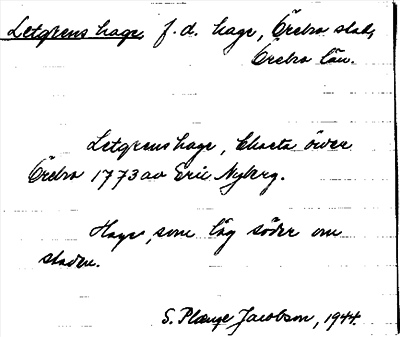 Letgrens hage, f. d. hage, Örebro stad,
Örebro län.
Letgrens hage, Charta öwer
Örebro 1773 av Eric Nyberg.
Hage, som låg söder om
staden.
S. Plange Jacobson, 1944.